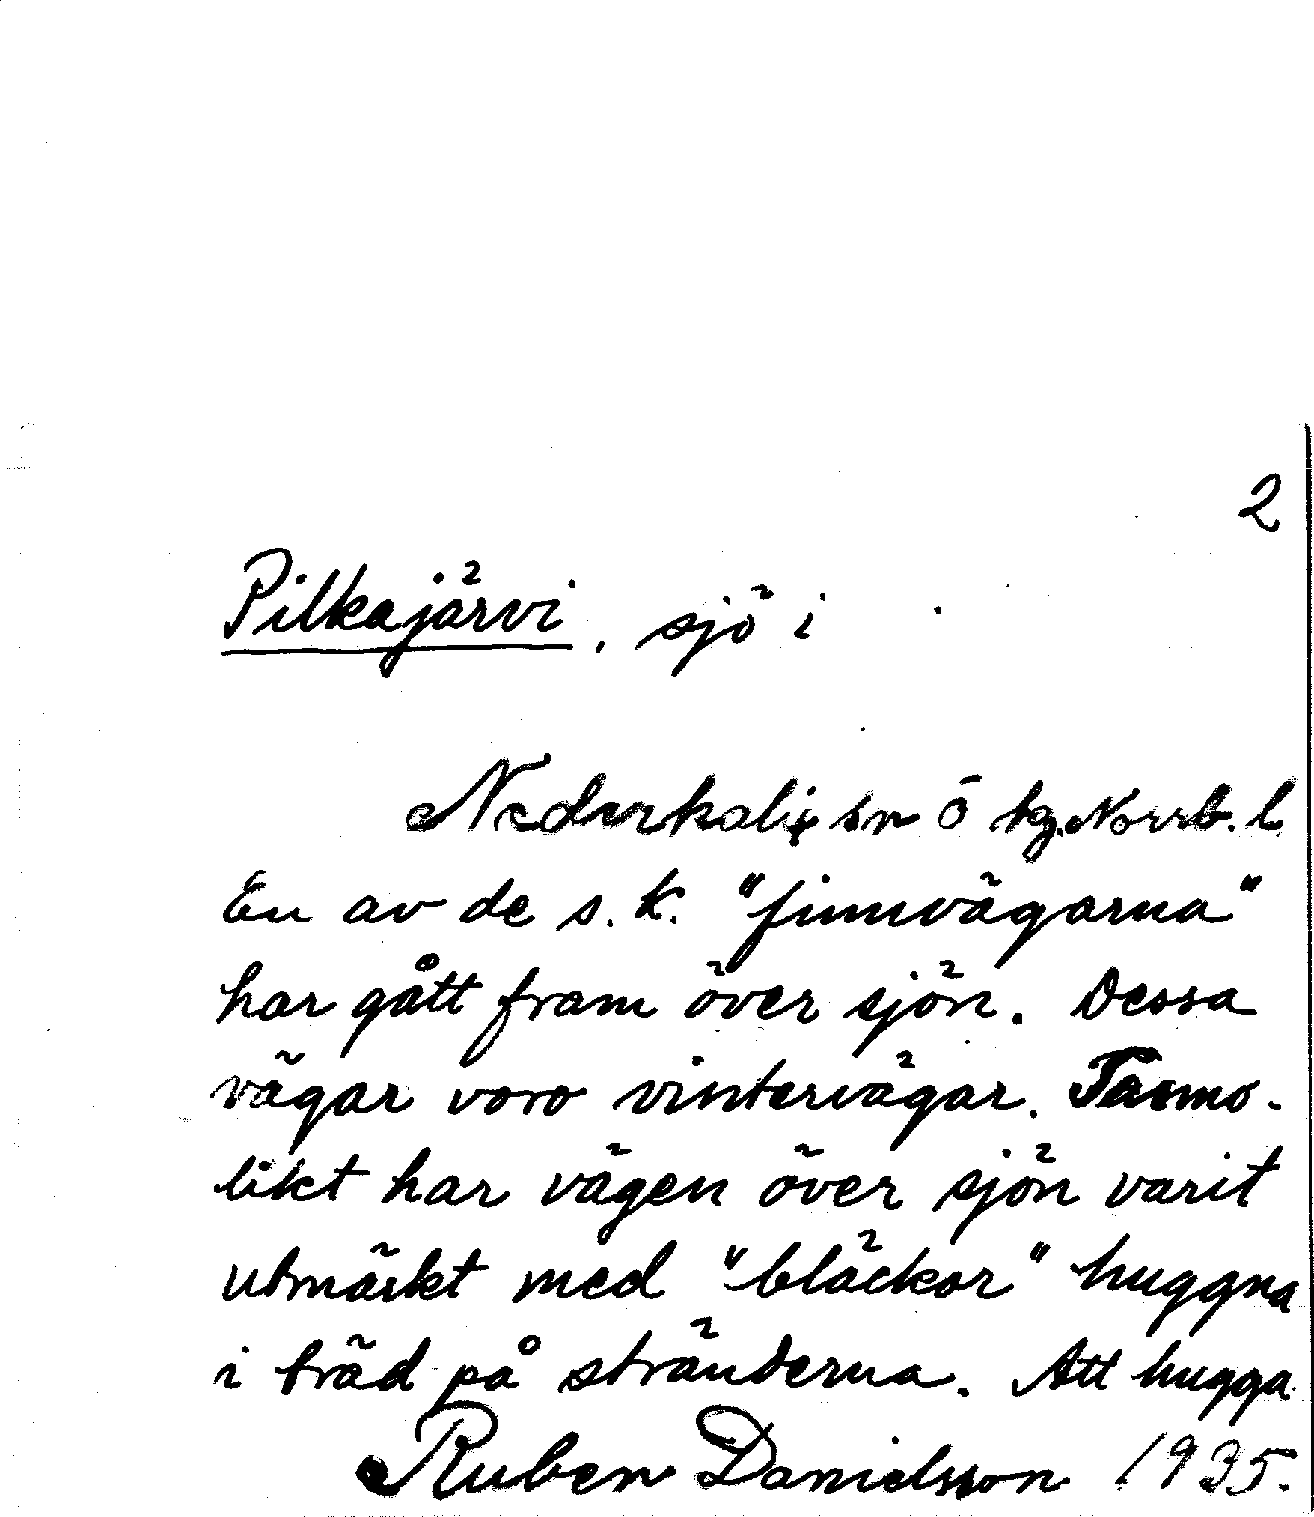 2
Pilkajärvi, sjö i
Nederkalix sn Ö hg. Norrb. l
En av de s. k. "finnvägarna"
har gått fram över sjön. Dessa
vägar voro vintervägar. Sanno-
likt har vägen över sjön varit
utmärkt med "bläckor" huggna
i träd på stränderna. Att hugga
Ruben Danielsson 1935.